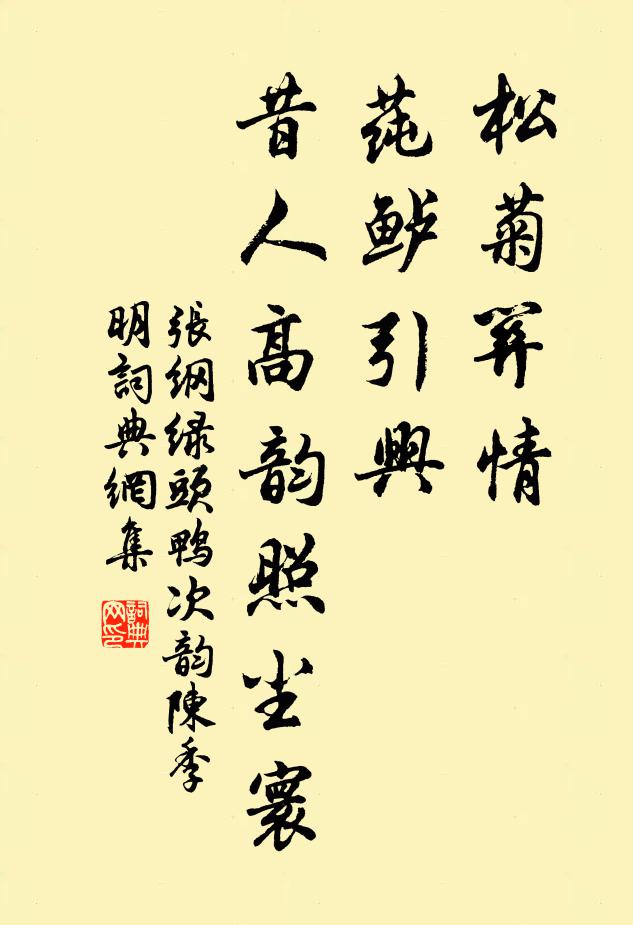 松菊关情
莼鲈引興
昔人高韵照尘寰
張纲绿頭鴨次韵陳季
明詞典網集
詞典
网印